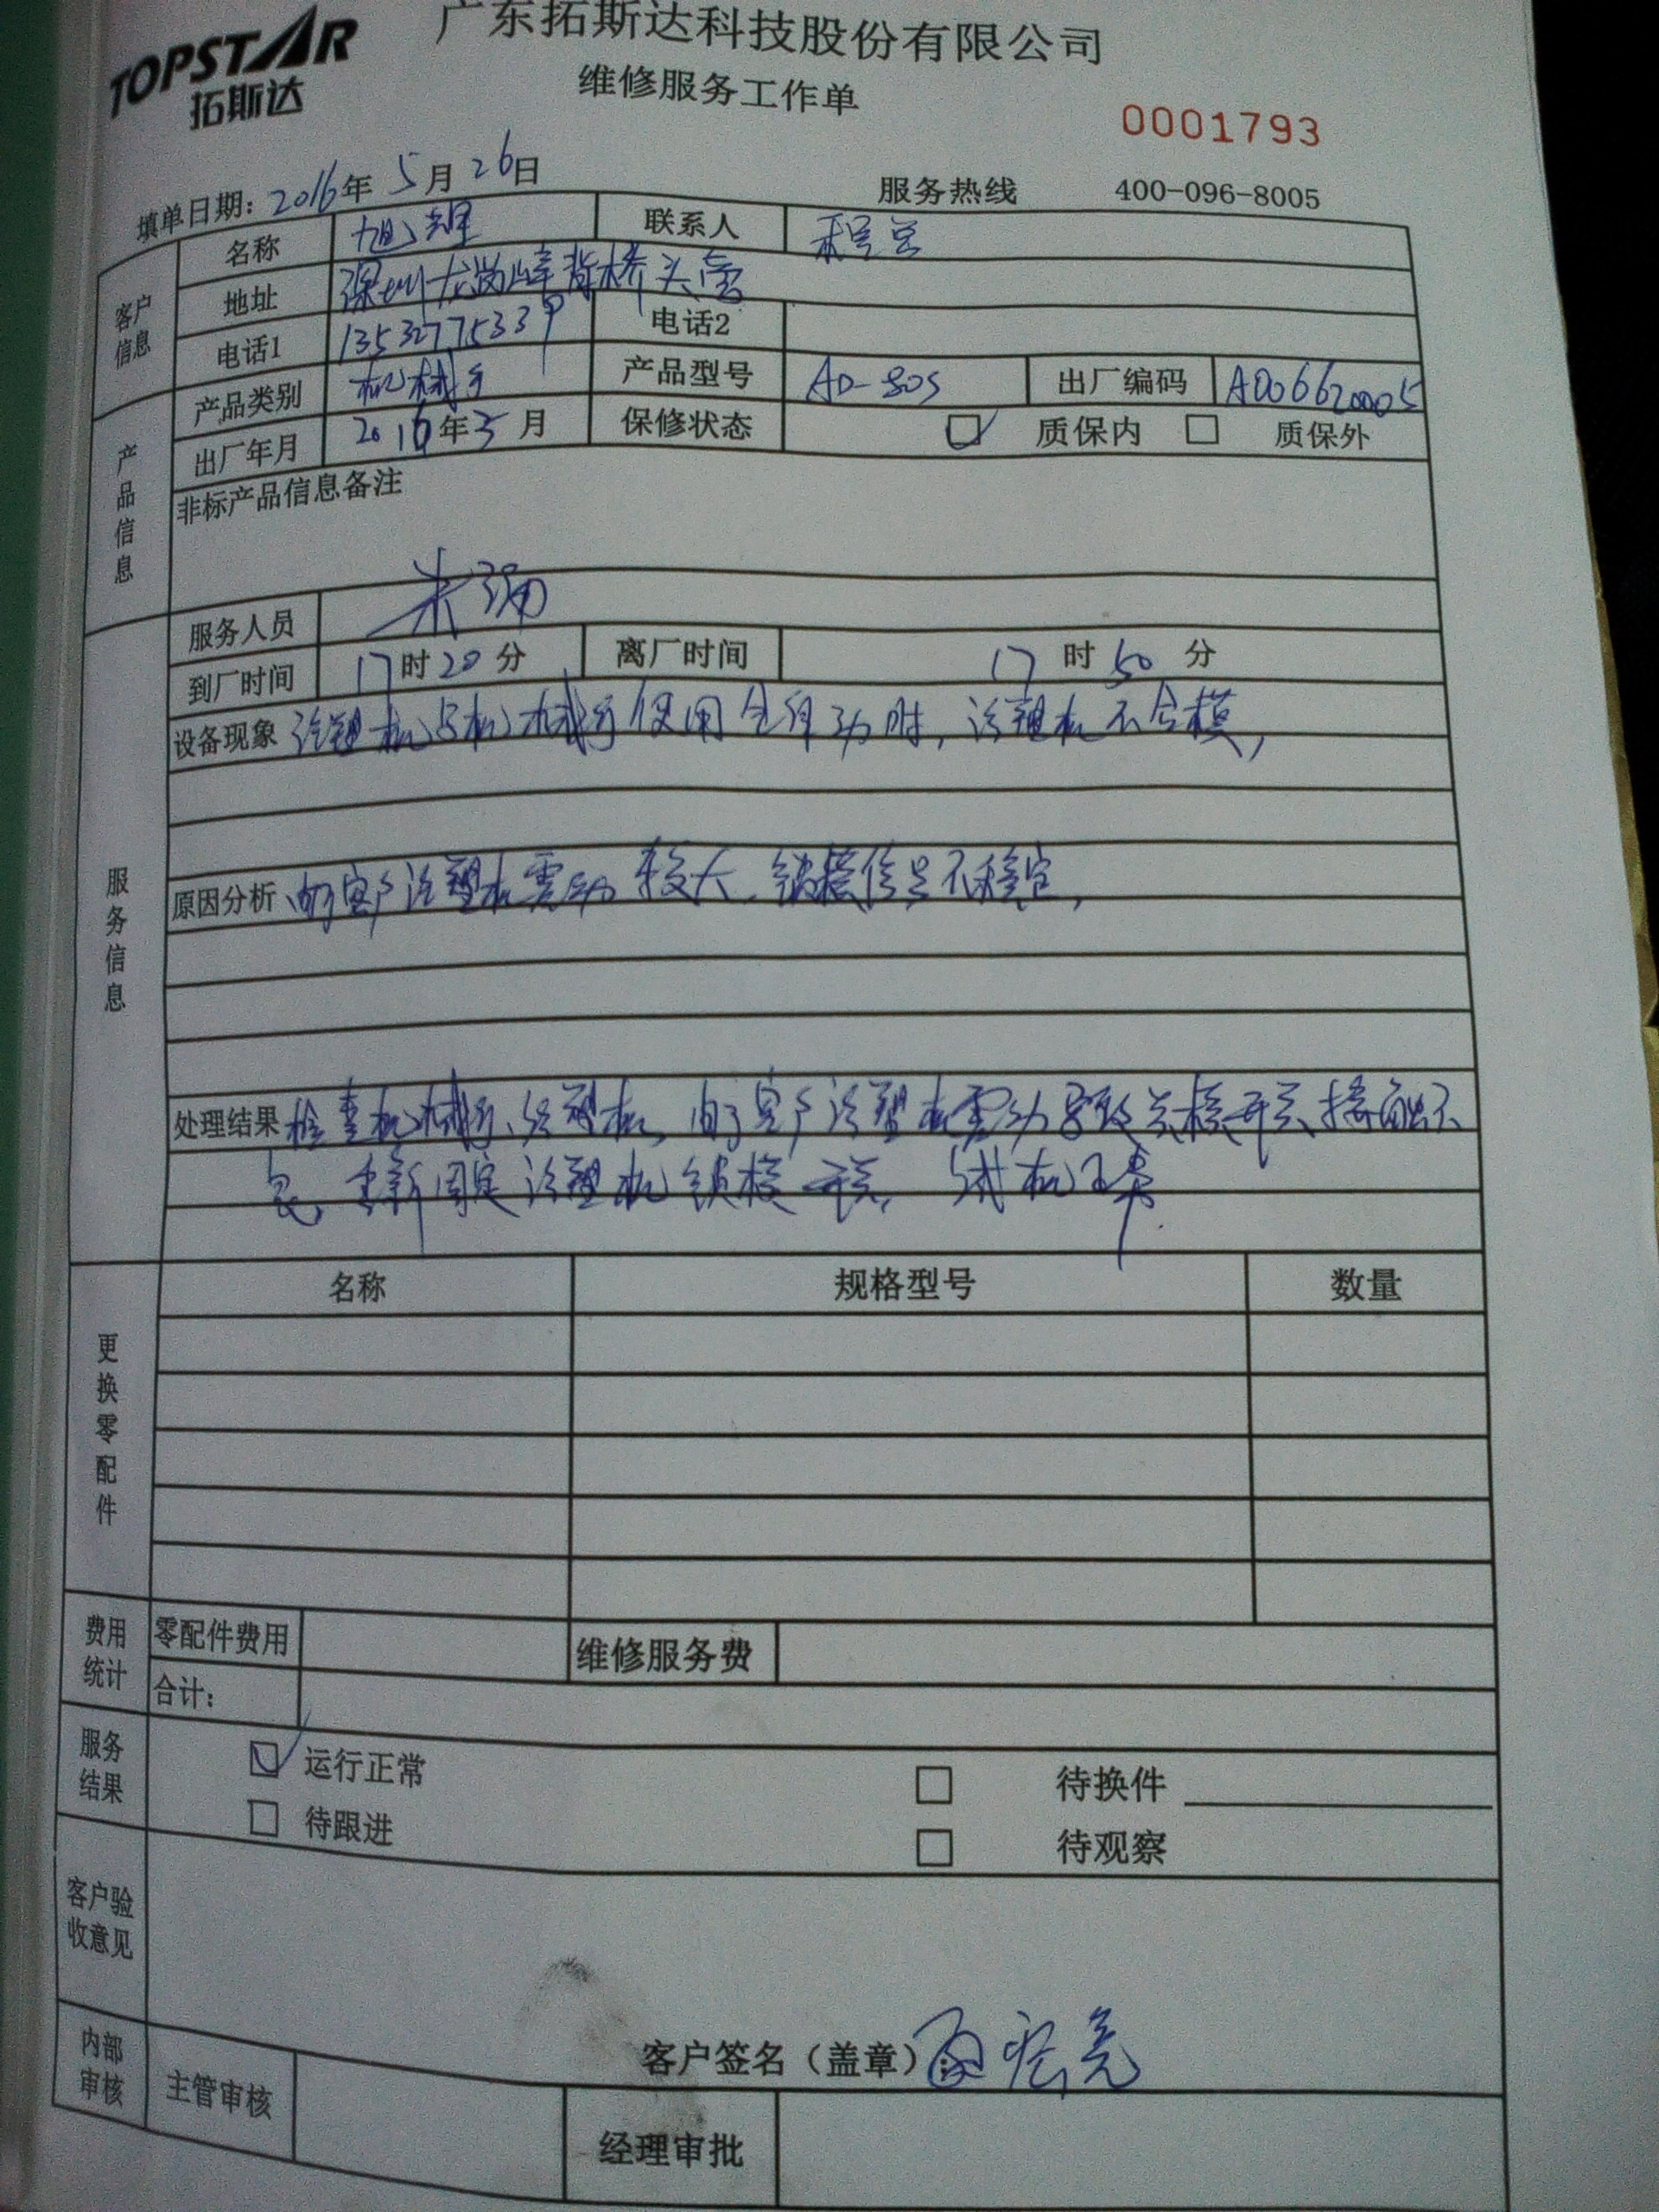 TOPSTAR
拓斯达
广东拓斯达科技股份有限公司
维修服务工作单
0001793
填单日期：2016年 5月 26日
服务热线 400-096-8005
客户信息
名称 旭辉 联系人 程总
地址 深圳龙岗
电话1 13532775339 电话2
产品信息
产品类别 机械手 产品型号 AD-80S 出厂编码 A006620005
出厂年月 2016年 3月 保修状态 质保内 质保外
非标产品信息备注
服务信息
服务人员 朱强
到厂时间 17时20分 离厂时间 17时50分
设备现象 注塑机与机械手使用全自动时，注塑机不合模，
原因分析 由于客户注塑机震动较大，锁模信号不稳定，
处理结果 检查机械手、注塑机，由于客户注塑机震动导致关模开关接触不
良，重新固定注塑机锁模开关，试机正常
更换零配件
名称 规格型号 数量
费用统计
零配件费用 维修服务费
合计：
服务结果
运行正常 待换件
待跟进 待观察
客户验收意见
客户签名（盖章）
内部审核
主管审核 经理审批